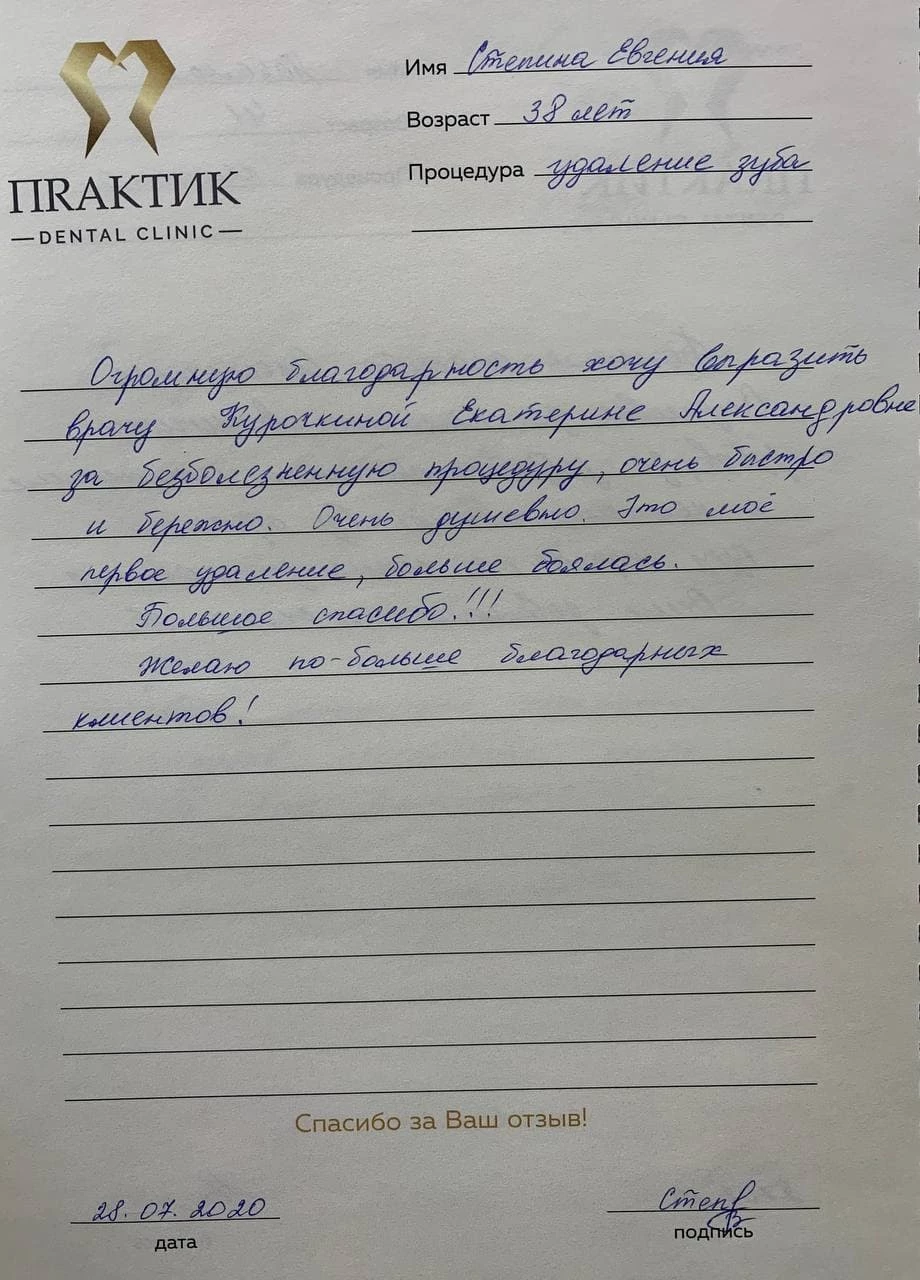 ПRАКТИК
DENTAL CLINIC
Имя Степина Евгения
Возраст 38 лет
Процедура удаление зуба
Огромную благодарность хочу выразить
врачу Курочкиной Екатерине Александровне
за безболезненную процедуру, очень быстро
и бережно. Очень душевно. Это моё
первое удаление, больше боялась.
Большое спасибо!!!
Желаю по-больше благодарных
клиентов!
Спасибо за Ваш отзыв!
28.07.2020
дата
Степ
подпись